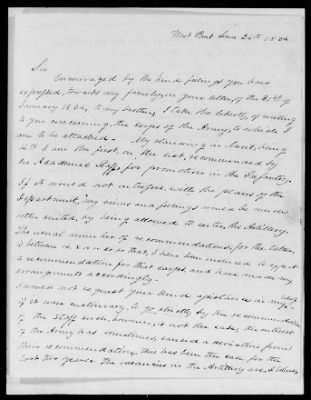 West Point June 24th 18
Sir
Encouraged by the kind feelings you have
expressed, towards my family, in your letter, of the 21st of
January 1826, to my brother, I take the liberty of writing
to you concerning, the corps of the Army, to which I
am to be attached. My standing in rank, being
I am the first, in the list, recommended by
the Academic Staff, for promotion in the Infantry.
If it would not interfere, with the plans of the
Department, my views and feelings would be much
better suited, by being allowed to enter the Artillery.
The usual number of recommendations, for the latter,
is between so that, I have been induced to expect
a recommendation for that corps, and have made my
arrangements accordingly.
I would not request your kind assistance in my behalf
if it were customary, to go strictly by the recommendation
of the Staff such, however, is not the case, the interest
of the Army has sometimes, caused a deviation from
their recommendation, this has been the case for the
last two years. The vacancies in the Artillery are, I believe,